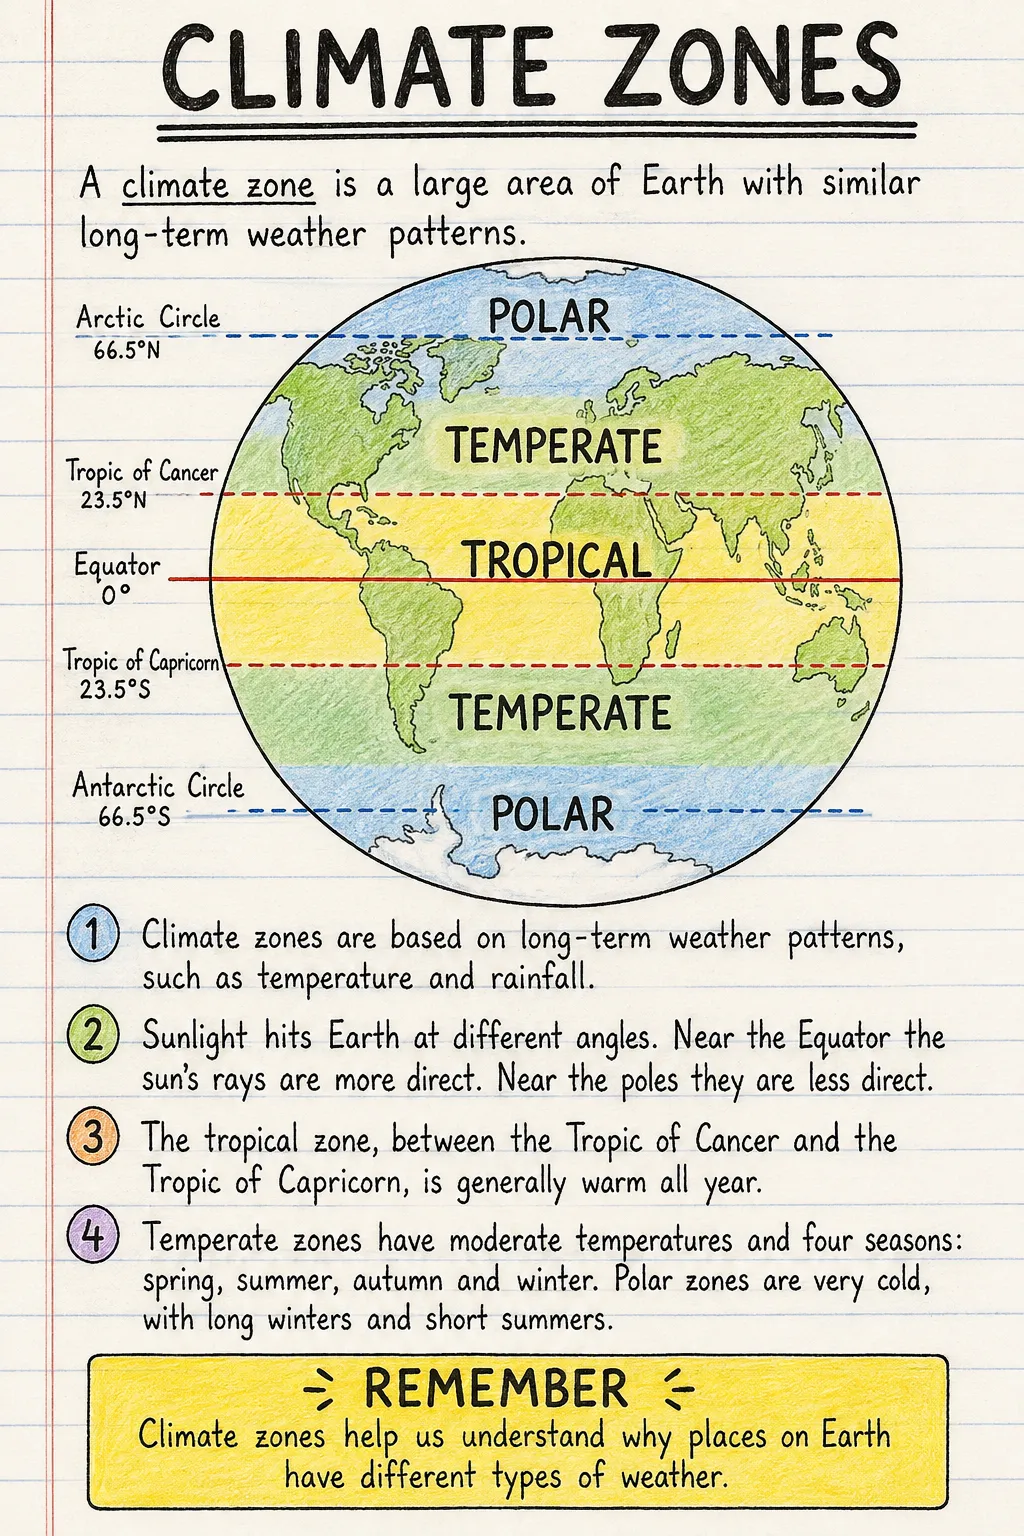 CLIMATE ZONES
A climate zone is a large area of Earth with similar
long-term weather patterns.
POLAR
Arctic Circle
66.5°N
TEMPERATE
Tropic of Cancer
23.5°N
TROPICAL
Equator
0°
Tropic of Capricorn
23.5°S
TEMPERATE
Antarctic Circle
66.5°S
POLAR
1 Climate zones are based on long-term weather patterns,
such as temperature and rainfall.
2 Sunlight hits Earth at different angles. Near the Equator the
sun's rays are more direct. Near the poles they are less direct.
3 The tropical zone, between the Tropic of Cancer and the
Tropic of Capricorn, is generally warm all year.
4 Temperate zones have moderate temperatures and four seasons:
spring, summer, autumn and winter. Polar zones are very cold,
with long winters and short summers.
REMEMBER
Climate zones help us understand why places on Earth
have different types of weather.